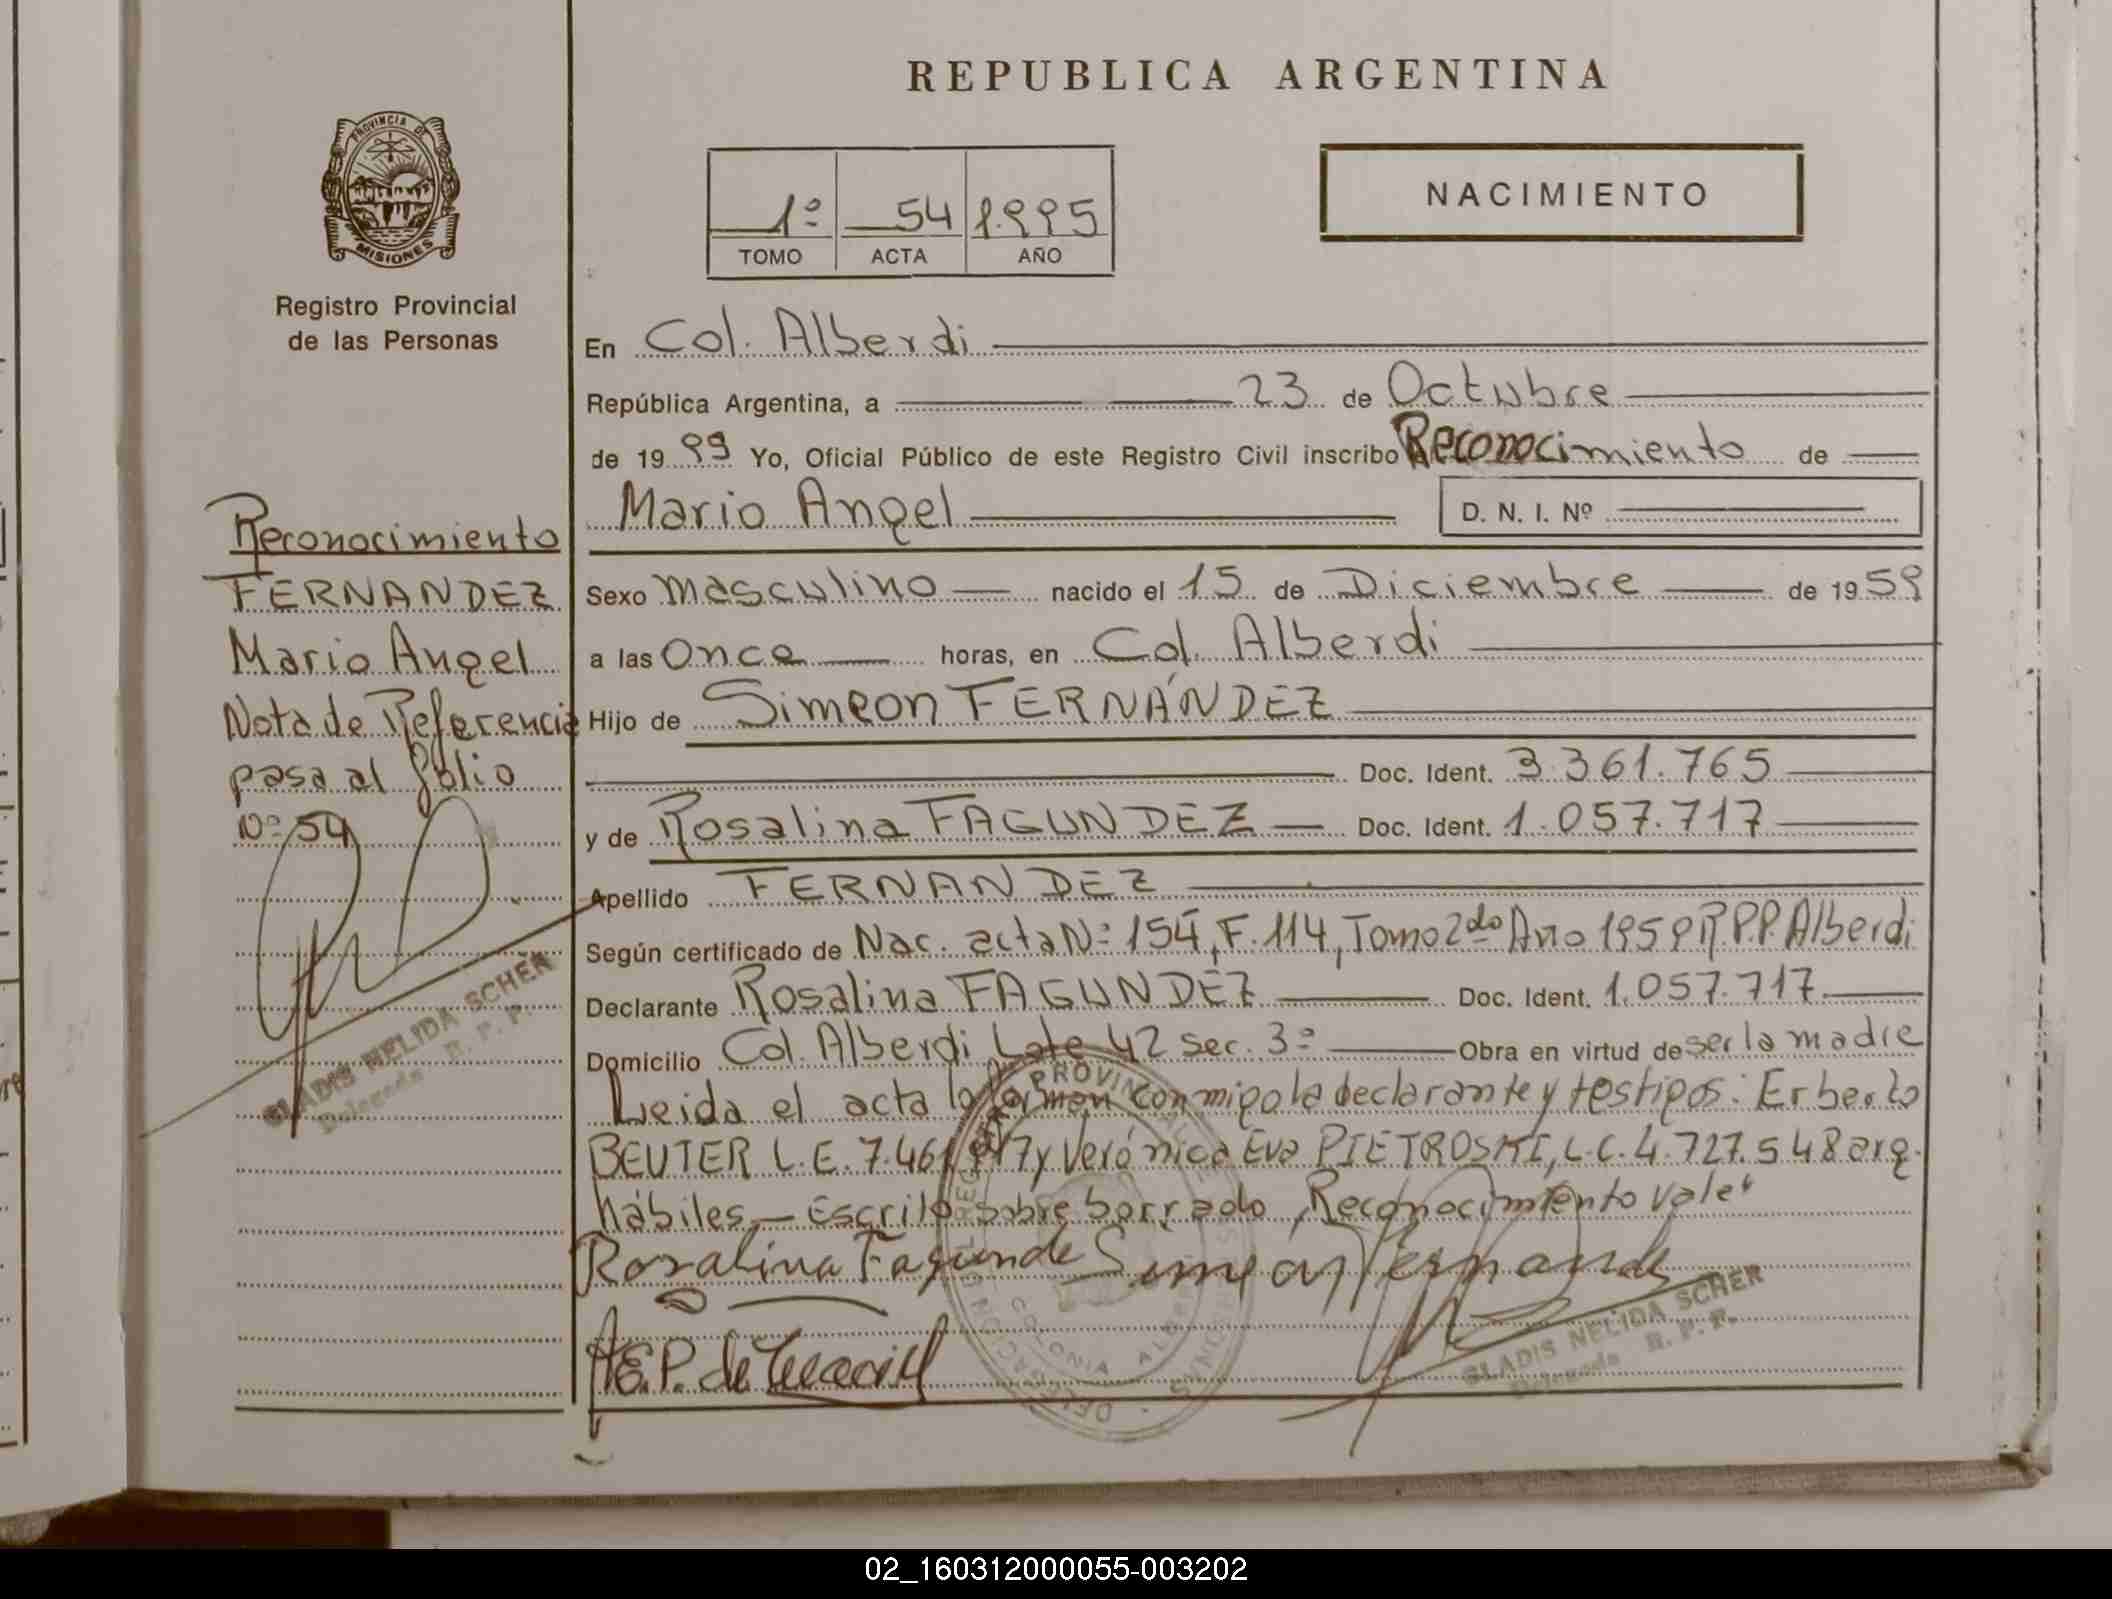 REPUBLICA ARGENTINA
PROVINCIA DE
MISIONES
Registro Provincial
de las Personas
1º 54 1.995
TOMO ACTA AÑO
NACIMIENTO
En Col. Alberdi
República Argentina, a 23 de Octubre
de 1999 Yo, Oficial Público de este Registro Civil inscribo Reconocimiento de
Mario Angel D. N. I. Nº
Sexo masculino nacido el 15 de Diciembre de 1959
a las Once horas, en Col. Alberdi
Hijo de Simeon FERNÁNDEZ
Doc. Ident. 3.361.765
y de Rosalina FAGUNDEZ Doc. Ident. 1.057.717
Apellido FERNANDEZ
Según certificado de Nac. acta Nº 154, F. 114, Tomo 2do Año 1959 R.P.P. Alberdi
Declarante Rosalina FAGUNDEZ Doc. Ident. 1.057.717
Domicilio Col. Alberdi Lote 42 sec. 3º Obra en virtud de ser la madre
Leida el acta la firman conmigo la declarante y testigos: Erberto
BEUTER L.E. 7.461. y Verónica Eva PIETROSKI, L.C. 4.727.548 arg.
hábiles.- Escrito sobre borrado "Reconocimiento Vale"
Rosalina Fagunde Simeon Fernande
A.E.P. de
GLADIS NELIDA SCHER
Delegada R. P. P.
Reconocimiento
FERNANDEZ
Mario Angel
Nota de Referencia
pasa al folio
Nº 54
GLADIS NELIDA SCHER
Delegada R. P. P.
PROVINCIAL
COLONIA ALBERDI
02_160312000055-003202